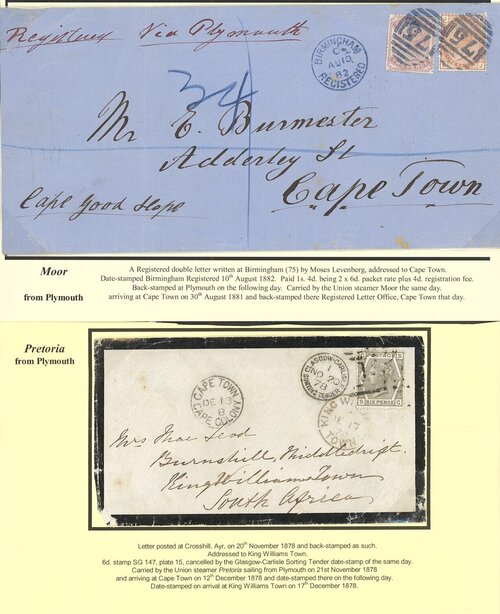 Registered Via Plymouth
BIRMINGHAM
C
AU 10
82
REGISTERED
75
75
34
Mr E. Burmester
Adderley St
Cape Town
Cape Good Hope
Moor
from Plymouth
A Registered double letter written at Birmingham (75) by Moses Levenberg, addressed to Cape Town.
Date-stamped Birmingham Registered 10th August 1882. Paid 1s. 4d. being 2 x 6d. packet rate plus 4d. registration fee.
Back-stamped at Plymouth on the following day. Carried by the Union steamer Moor the same day.
arriving at Cape Town on 30th August 1881 and back-stamped there Registered Letter Office, Cape Town that day.
Pretoria
from Plymouth
CAPE TOWN
DE 13
8
CAPE COLONY
GLASGOW-CARLISLE
1
NO 20
78
SORTING TENDER
POSTAGE
SIX PENCE
S G
KING W
DE 17
TOWN
Mrs Mac Leod
Burnshill, Middledrift
King William's Town
South Africa
Letter posted at Crosshill, Ayr, on 20th November 1878 and back-stamped as such.
Addressed to King Williams Town.
6d. stamp SG 147, plate 15, cancelled by the Glasgow-Carlisle Sorting Tender date-stamp of the same day.
Carried by the Union steamer Pretoria sailing from Plymouth on 21st November 1878
and arriving at Cape Town on 12th December 1878 and date-stamped there on the following day.
Date-stamped on arrival at King Williams Town on 17th December 1878.